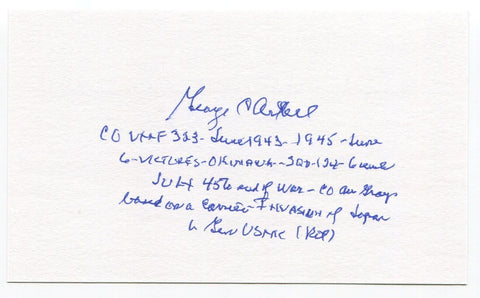 George C Axtell
CO VMF 323 - June 1943 - 1945 - June
6 - VICTORIES - OKINAWA - JAP - 6
JULY 45 to end of War - CO Air Group
based on a Carrier - INVASION of Japan
Gen USMC (Ret)